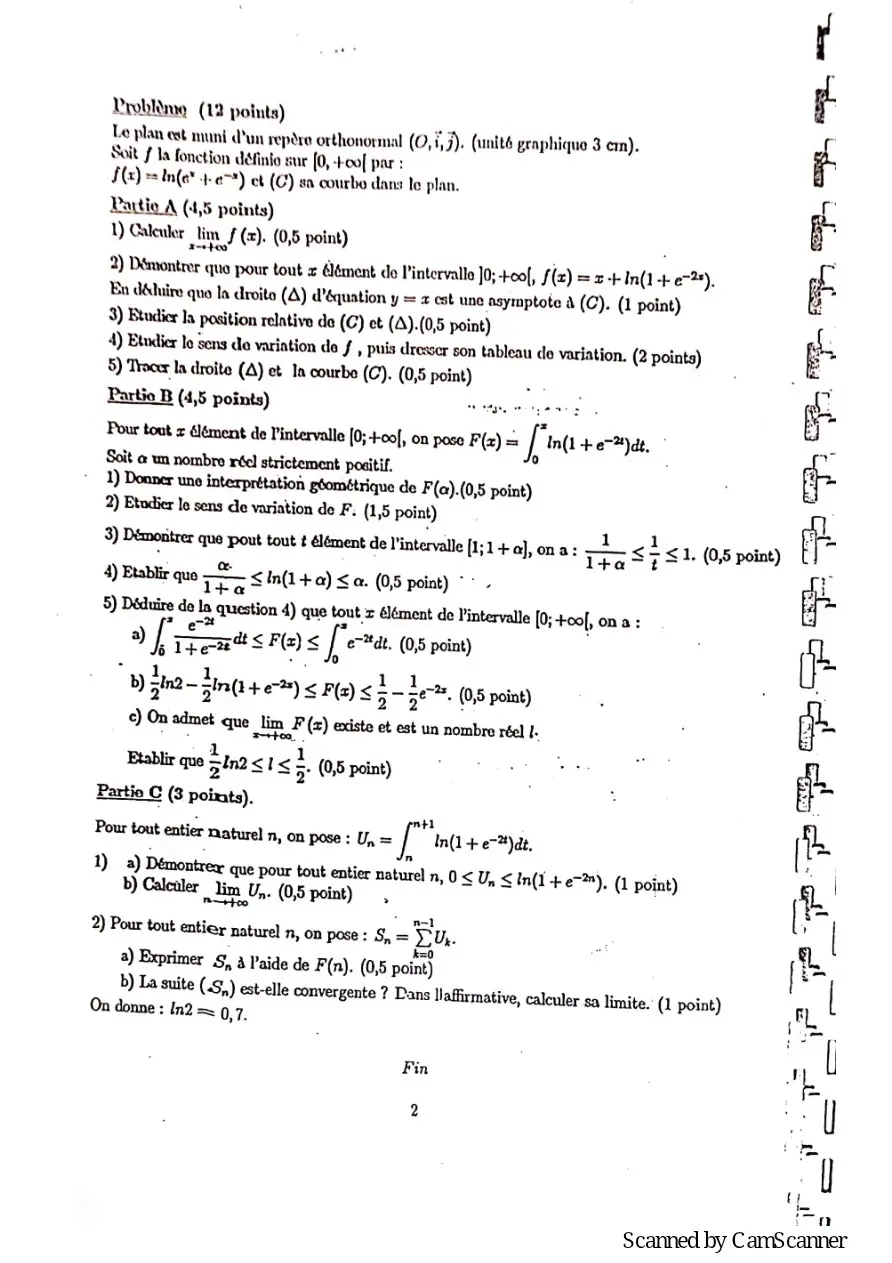 Problème (12 points)
Le plan est muni d'un repère orthonormal (O, i⃗, j⃗). (unité graphique 3 cm).
Soit f la fonction définie sur [0, +∞[ par :
f(x) = ln(eˣ + e⁻ˣ) et (C) sa courbe dans le plan.
Partie A (4,5 points)
1) Calculer lim_{x→+∞} f (x). (0,5 point)
2) Démontrer que pour tout x élément de l'intervalle ]0; +∞[, f(x) = x + ln(1 + e^{-2x}).
En déduire que la droite (Δ) d'équation y = x est une asymptote à (C). (1 point)
3) Etudier la position relative de (C) et (Δ).(0,5 point)
4) Etudier le sens de variation de f , puis dresser son tableau de variation. (2 points)
5) Tracer la droite (Δ) et la courbe (C). (0,5 point)
Partie B (4,5 points)
Pour tout x élément de l'intervalle [0; +∞[, on pose F(x) = ∫_0^x ln(1 + e^{-2t})dt.
Soit α un nombre réel strictement positif.
1) Donner une interprétation géométrique de F(α).(0,5 point)
2) Etudier le sens de variation de F. (1,5 point)
3) Démontrer que pout tout t élément de l'intervalle [1; 1 + α], on a : 1/(1 + α) ≤ 1/t ≤ 1. (0,5 point)
4) Etablir que α/(1 + α) ≤ ln(1 + α) ≤ α. (0,5 point)
5) Déduire de la question 4) que tout x élément de l'intervalle [0; +∞[, on a :
a) ∫_0^x e^{-2t}/(1 + e^{-2t}) dt ≤ F(x) ≤ ∫_0^x e^{-2t}dt. (0,5 point)
b) 1/2 ln2 − 1/2 ln(1 + e^{-2x}) ≤ F(x) ≤ 1/2 − 1/2 e^{-2x}. (0,5 point)
c) On admet que lim_{x→+∞} F (x) existe et est un nombre réel l.
Etablir que 1/2 ln2 ≤ l ≤ 1/2. (0,5 point)
Partie C (3 points).
Pour tout entier naturel n, on pose : U_n = ∫_n^{n+1} ln(1 + e^{-2t})dt.
1) a) Démontrer que pour tout entier naturel n, 0 ≤ U_n ≤ ln(1 + e^{-2n}). (1 point)
b) Calculer lim_{n→+∞} U_n. (0,5 point)
2) Pour tout entier naturel n, on pose : S_n = ∑_{k=0}^{n-1} U_k.
a) Exprimer S_n à l'aide de F(n). (0,5 point)
b) La suite (S_n) est-elle convergente ? Dans l'affirmative, calculer sa limite. (1 point)
On donne : ln2 = 0,7.
Fin
2
Scanned by CamScanner